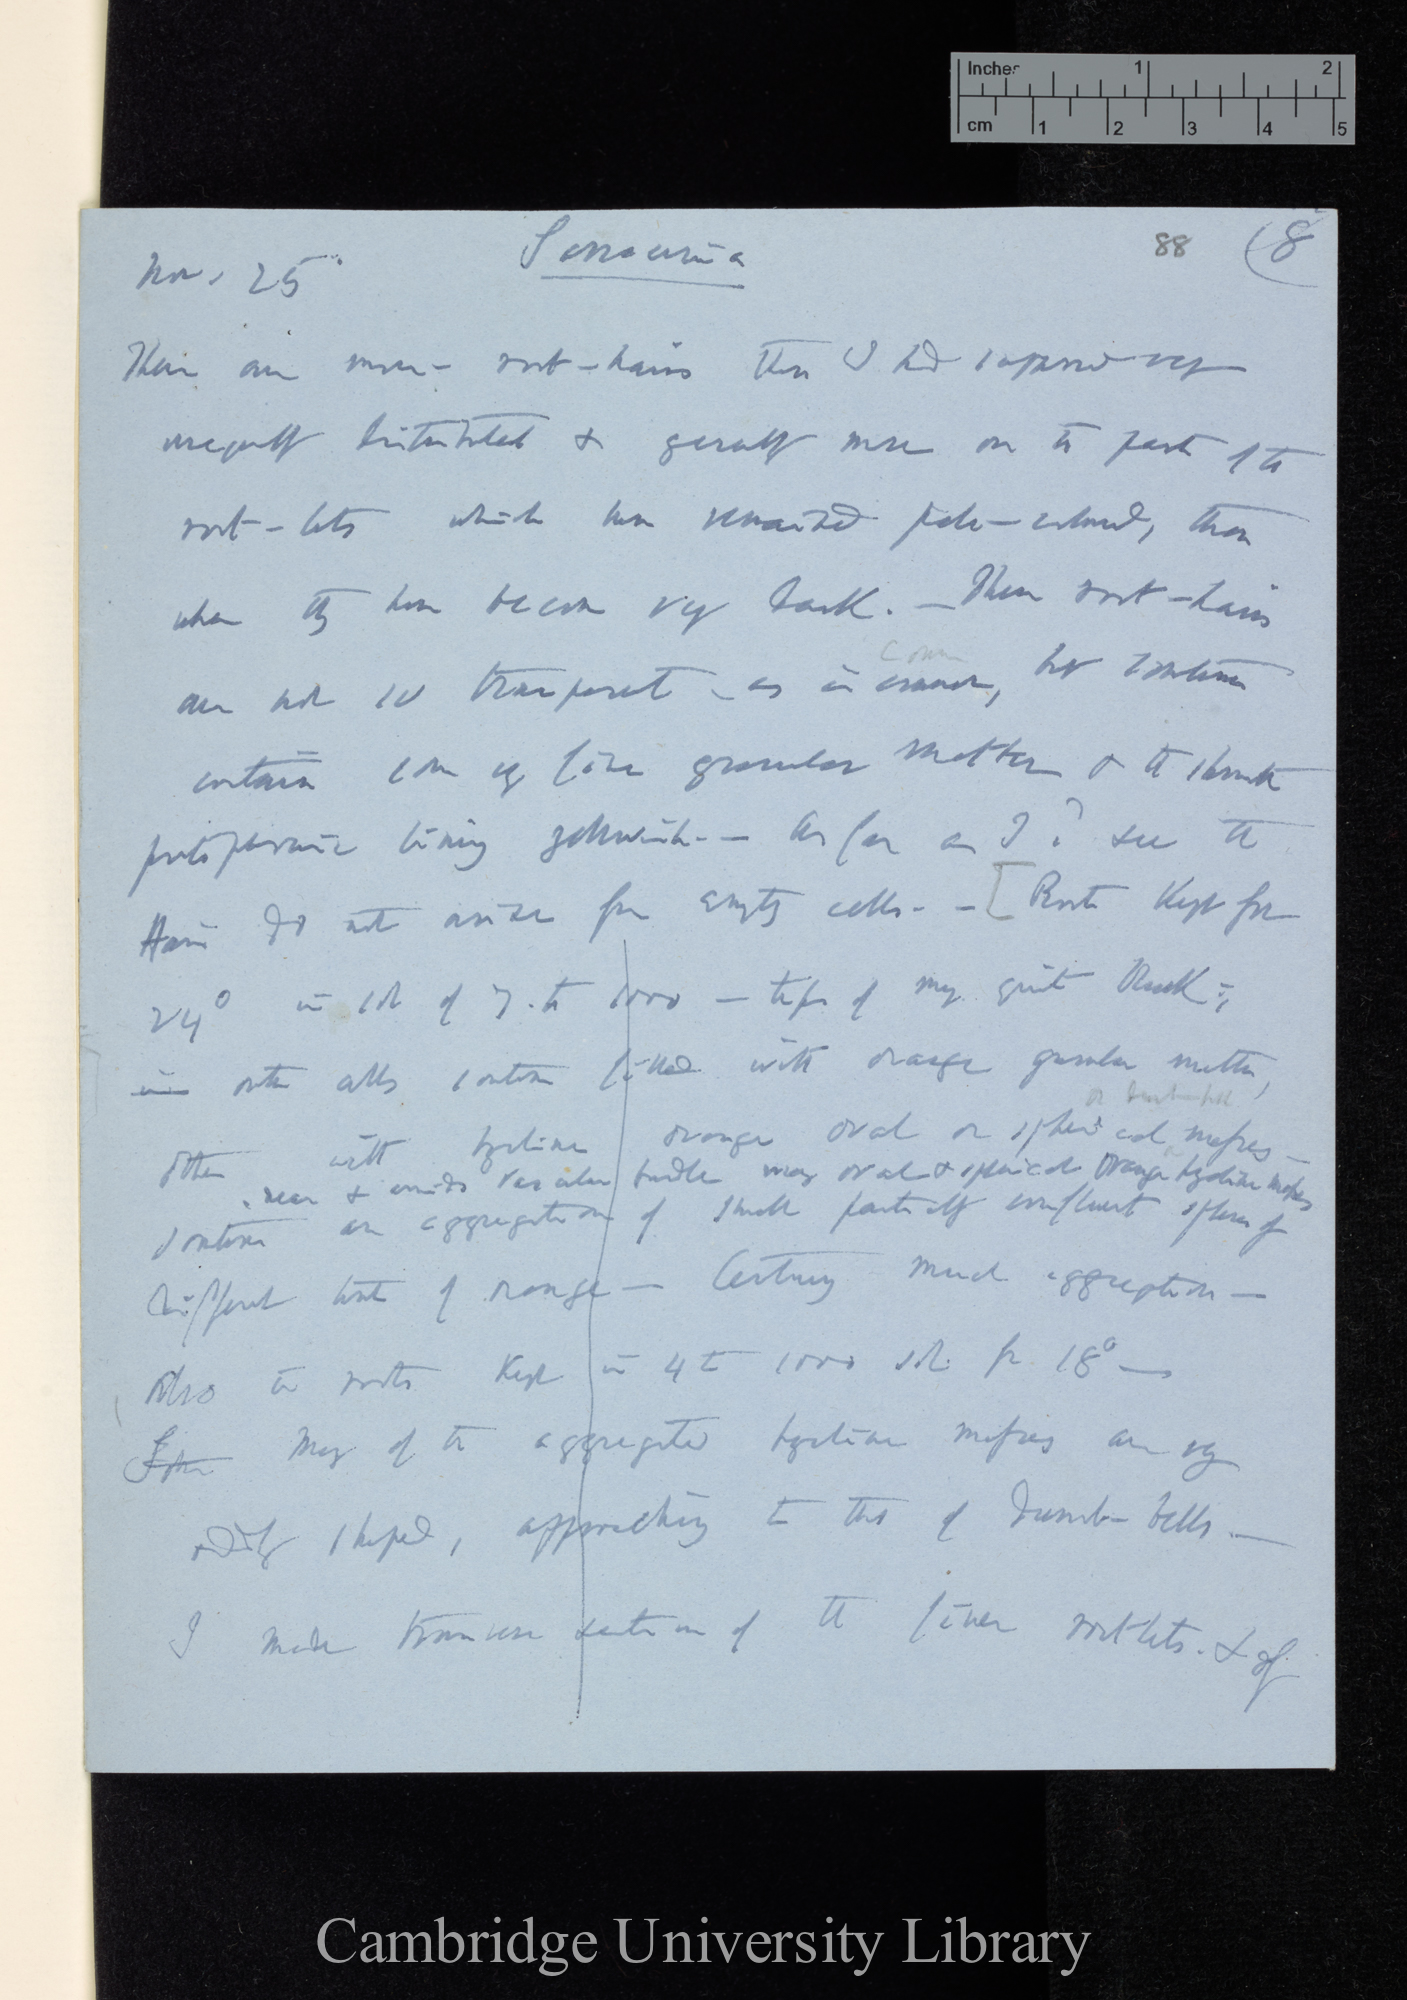 Inches 1 2
cm 1 2 3 4 5
Sarracenia
88 (8
Nov. 25
There are more root-hairs than I had supposed very
unequally distributed & generally more on the parts of the
root-lets which have remained pale-coloured, than
when they have become very dark. — These root-hairs
com
are not so transparent as in common, but sometimes
contain some fine granular matter & the
protoplasmic lining — As far as I can see the
Hairs do not arise from empty cells. — [Roots kept for
24° in sol of 7. to 1000 — tips of many quite Black;
in outer cells sometimes filled with orange granular matter,
or dumb-bell
others with hyaline orange oval or spherical masses —
near & amidst vascular bundle many oval & spherical orange hyaline masses
sometimes an aggregation of small partially confluent spheres of
different tints of orange — Certainly much aggregation —
Also in roots kept in 4 to 1000 sol. for 18° —
Some Many of the aggregated hyaline masses are very
oddly shaped, approaching to that of dumb-bells. —
I made transverse section of the finer rootlets. & of
Cambridge University Library